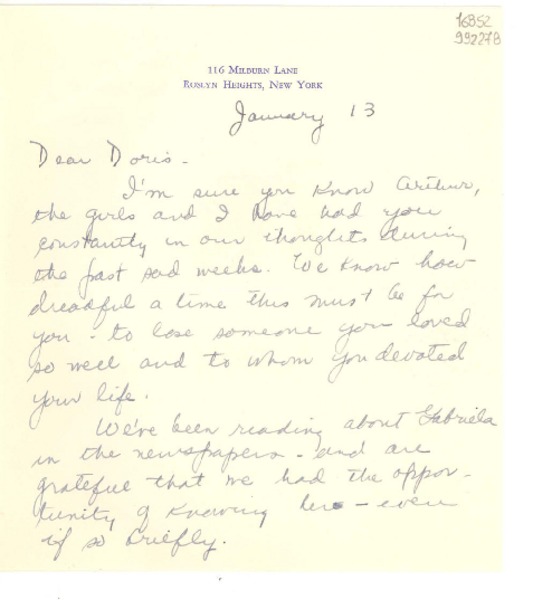 16852
992278
116 Milburn Lane
Roslyn Heights, New York
January 13
Dear Doris -
I'm sure you know Arthur,
the girls and I have had you
constantly in our thoughts during
the past sad weeks. We know how
dreadful a time this must be for
you - to lose someone you loved
so well and to whom you devoted
your life.
We've been reading about Gabriela
in the newspapers - and are
grateful that we had the oppor-
tunity of knowing her - even
if so briefly.